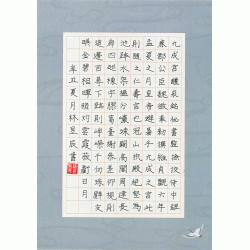 九成宮醴泉銘秘書監檢校侍中鉅
鹿郡公臣魏徵奉敕撰維貞觀六年
孟夏之月皇帝避暑乎九成之宮此
則隋之仁壽宮也冠山抗殿絕壑為
池跨水架楹分巖竦闕高閣周建長
廊四起棟宇膠葛臺榭參差仰視則
迢遰百尋下臨則崢嶸千仞珠璧交
映金碧相暉照灼雲霞蔽虧日月
辛丑夏月林昱辰書